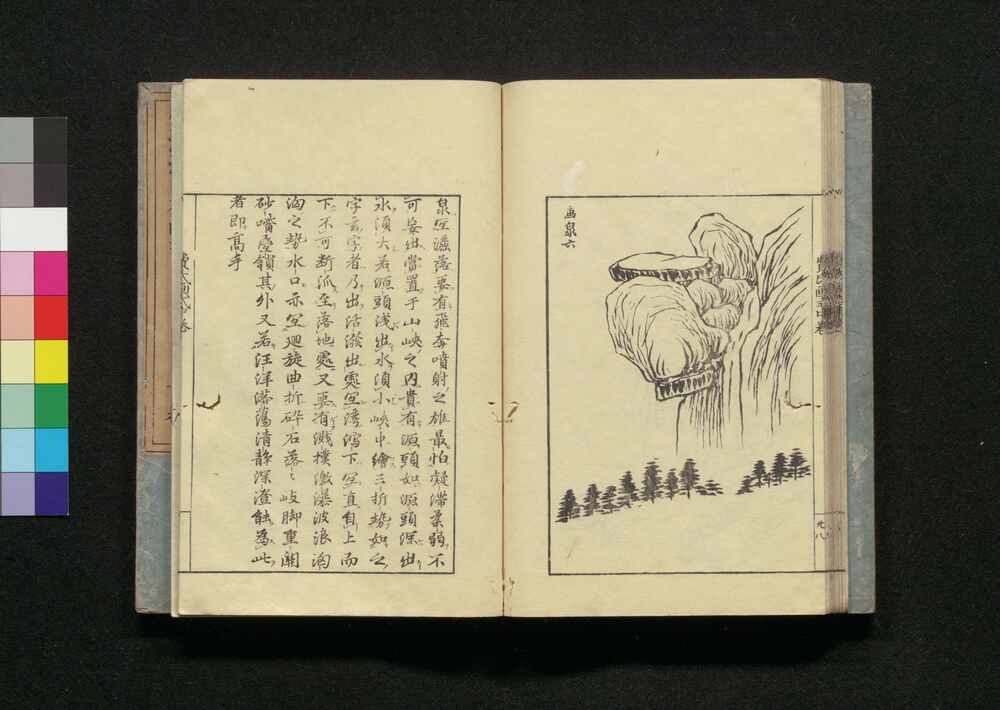 画泉六
泉宜瀑落要有飛奔噴射之雄最怕凝滯柔弱不
可妄出當置于山峽之内貴有源頭如源頭深出
水須大若源頭浅出水須小峽中繪三折勢如之
字玄字者乃出活潑出處宜湧瀉下宜直自上而
下不可断流至落地處又要有濺撲激瀑波浪洶
洶之勢水口亦宜廻旋曲折砕石落々岐脚重關
砂嘴疊鎖其外又若汪洋蕩清静深澄能為此
者即高手